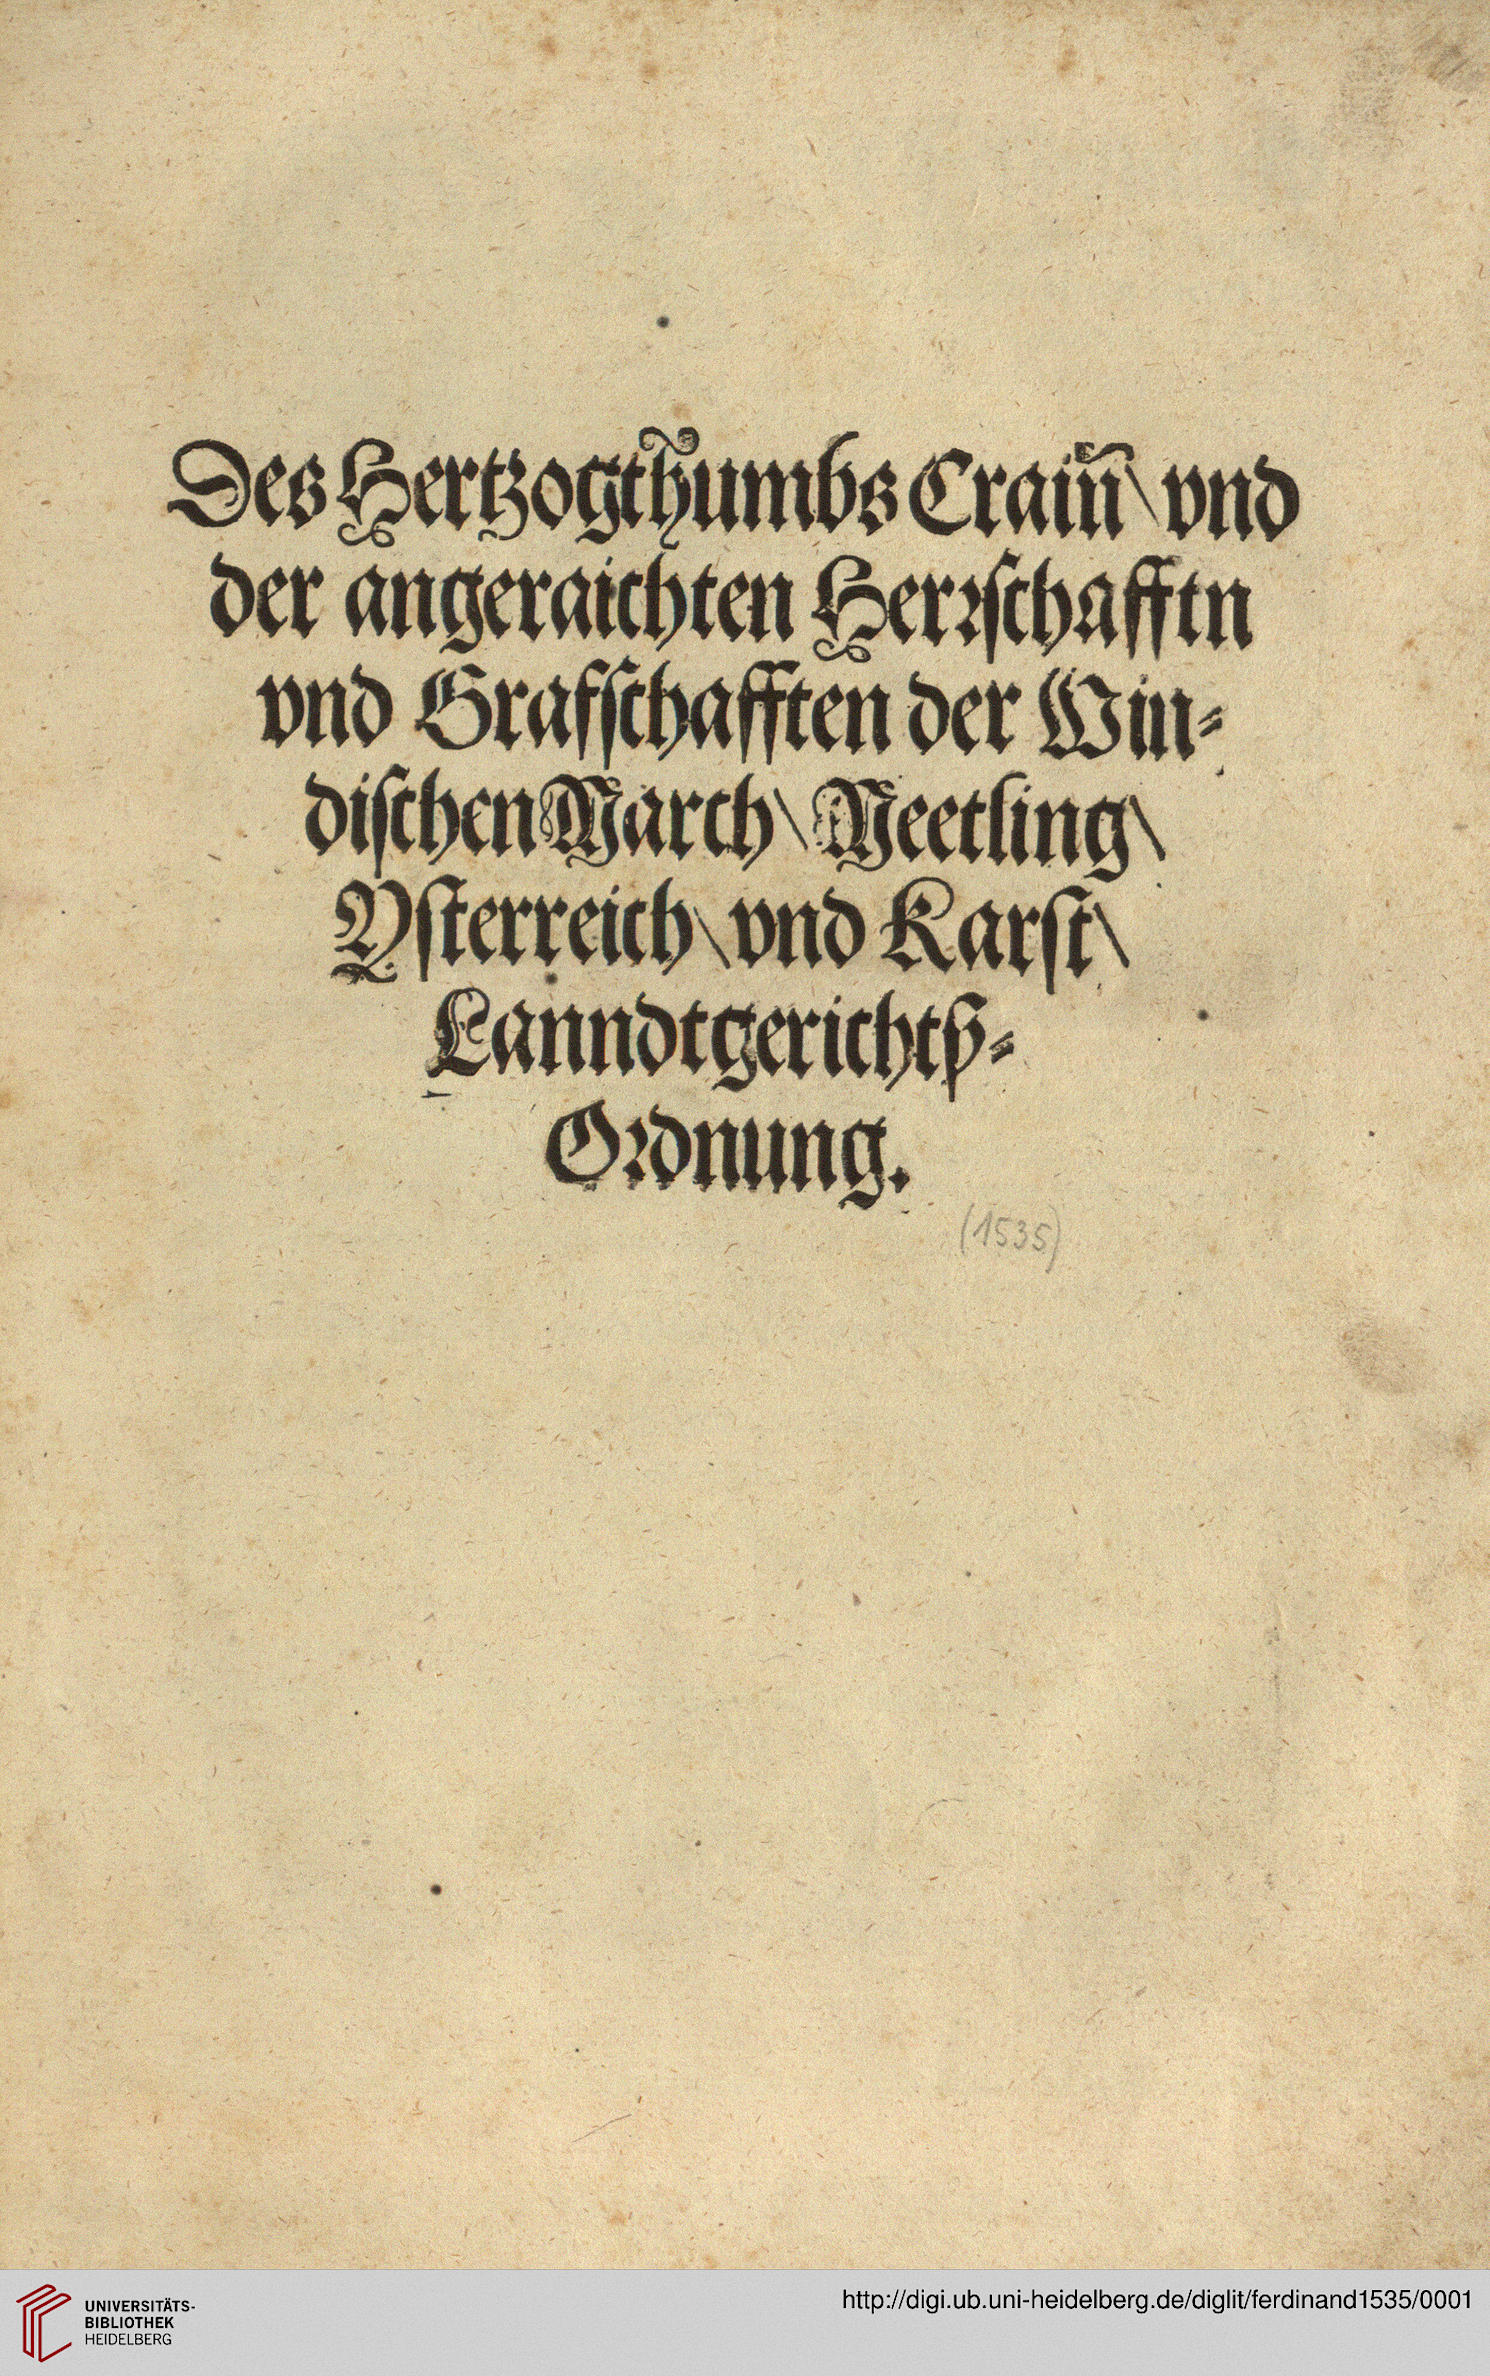 Des Hertzogthumbs Crain̄ \ vnd
der angeraichten Herꝛſchafftn
vnd Grafſchafften der Win⸗
diſchen March \ Meetling \
Yſterreich \ vnd Karſt \
Lanndtgerichtß⸗
Oꝛdnung.
(1535)
UNIVERSITÄTS-
BIBLIOTHEK
HEIDELBERG
http://digi.ub.uni-heidelberg.de/diglit/ferdinand1535/0001